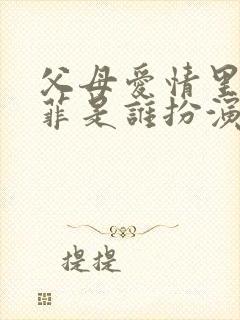 父母愛情里
菲是誰扮演
提提